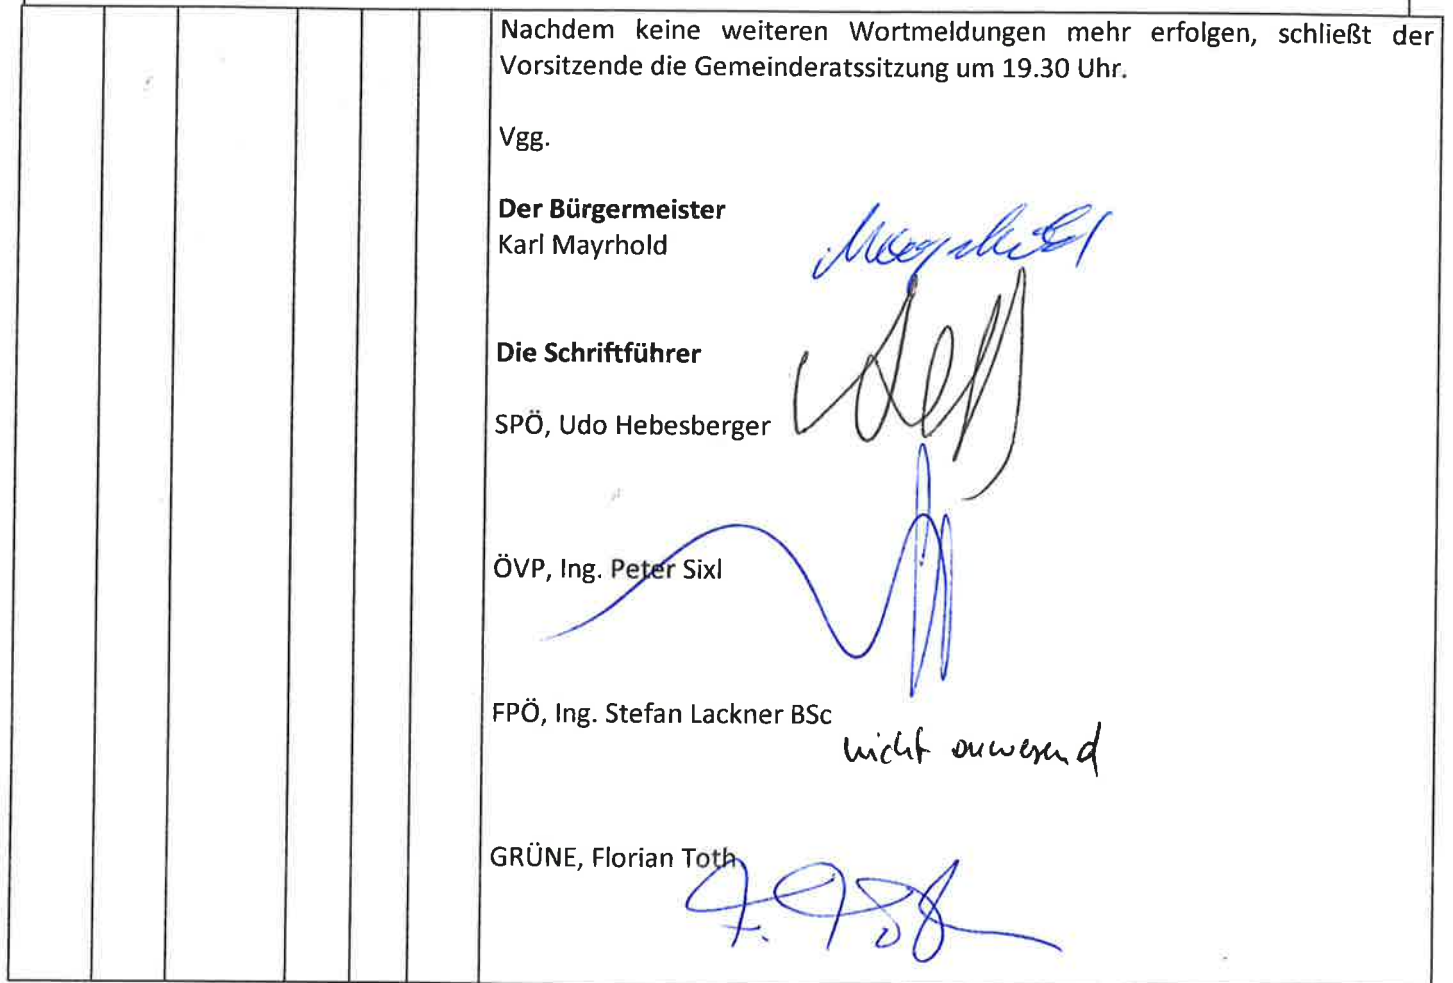 Nachdem keine weiteren Wortmeldungen mehr erfolgen, schließt der
Vorsitzende die Gemeinderatssitzung um 19.30 Uhr.
Vgg.
Der Bürgermeister
Karl Mayrhold
Die Schriftführer
SPÖ, Udo Hebesberger
ÖVP, Ing. Peter Sixl
FPÖ, Ing. Stefan Lackner BSc
nicht anwesend
GRÜNE, Florian Toth